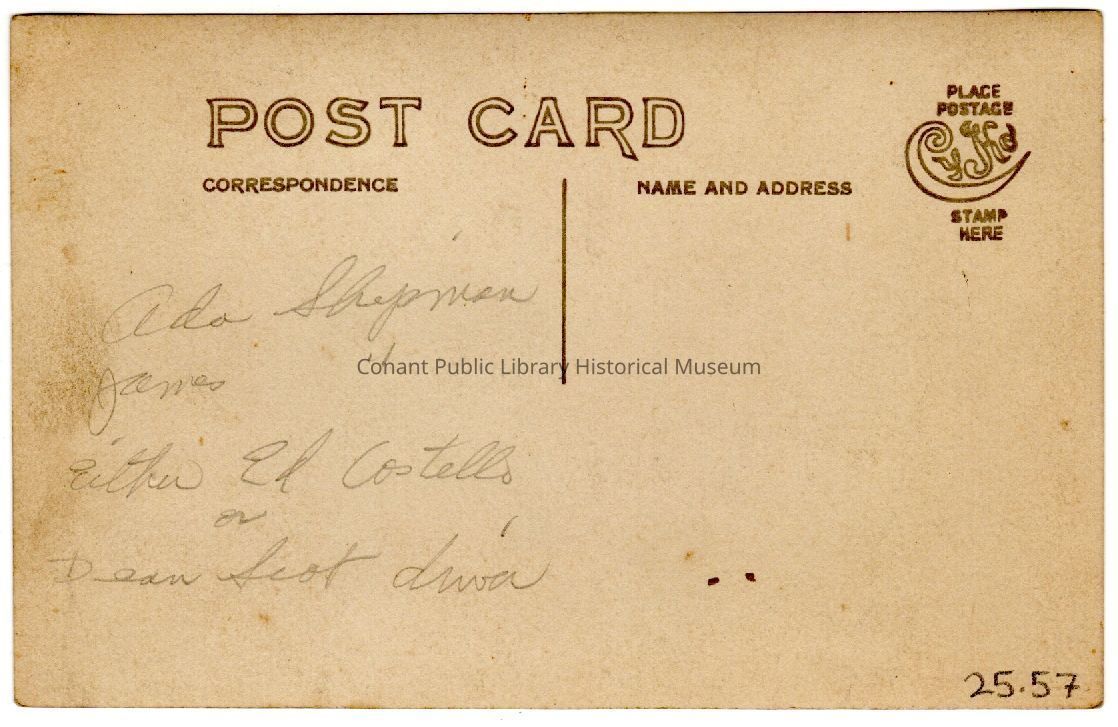 POST CARD
CORRESPONDENCE
NAME AND ADDRESS
PLACE
POSTAGE
STAMP
HERE
Ada Shepman
James "
Conant Public Library Historical Museum
Either Ed Costello
or
Dean Scot
25.57